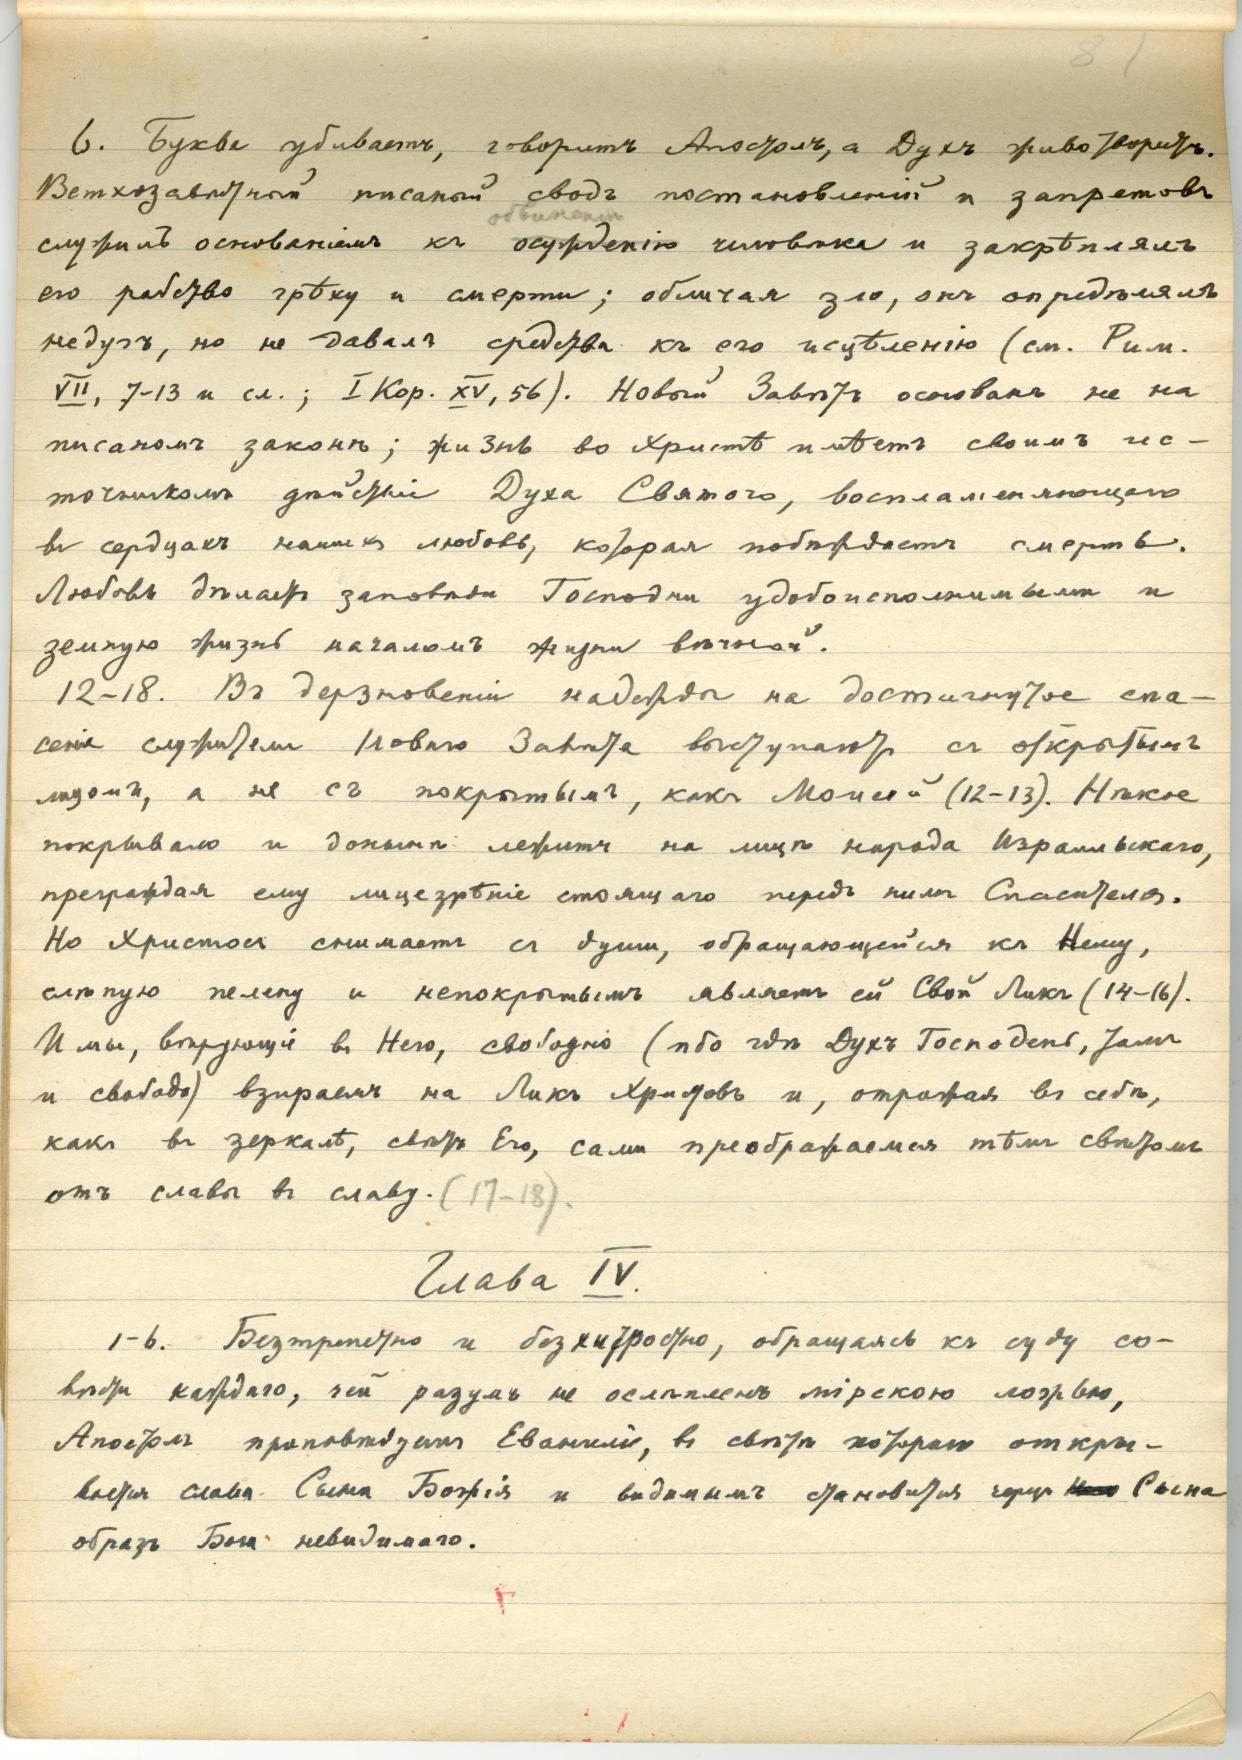 81
6. Буква убиваетъ, говоритъ Апостолъ, а Духъ животворитъ.
Ветхозавѣтный писаный сводъ постановленій и запретовъ
обвиненію
служилъ основаніемъ къ осужденію человѣка и закрѣплялъ
его рабство грѣху и смерти; обличая зло, онъ опредѣлялъ
недугъ, но не давалъ средства къ его исцѣленію (см. Рим.
VII, 7-13 и сл.; I Кор. XV, 56). Новый Завѣтъ основанъ не на
писаномъ законѣ; жизнь во Христѣ имѣетъ своимъ ис-
точникомъ дѣйствіе Духа Святого, воспламеняющаго
въ сердцахъ нашихъ любовь, которая побѣждаетъ смерть.
Любовь дѣлаетъ заповѣди Господни удобоисполнимыми и
земную жизнь началомъ жизни вѣчной.
12-18. Въ дерзновеніи надежды на достигнутое спа-
сеніе служители Новаго Завѣта выступаютъ съ открытымъ
лицомъ, а не съ покрытымъ, какъ Моисей (12-13). Нѣкое
покрывало и донынѣ лежитъ на лицѣ народа Израильскаго,
преграждая ему лицезрѣніе стоящаго передъ нимъ Спасителя.
Но Христосъ снимаетъ съ души, обращающейся къ Нему,
слѣпую пелену и непокрытымъ являетъ ей Свой Ликъ (14-16).
И мы, вѣрующіе въ Него, свободно (ибо гдѣ Духъ Господень, тамъ
и свобода) взираемъ на Ликъ Христовъ и, отражая въ себѣ,
какъ въ зеркалѣ, свѣтъ Его, сами преображаемся тѣмъ свѣтомъ
отъ славы въ славу. (17-18).
Глава IV.
1-6. Безтрепетно и безхитростно, обращаясь къ суду со-
вѣсти каждаго, чей разумъ не ослѣпленъ мірскою ложью,
Апостолъ проповѣдуетъ Евангеліе, въ свѣтѣ котораго откры-
вается слава Сына Божія и видимымъ становится черезъ Сына
образъ Бога невидимаго.